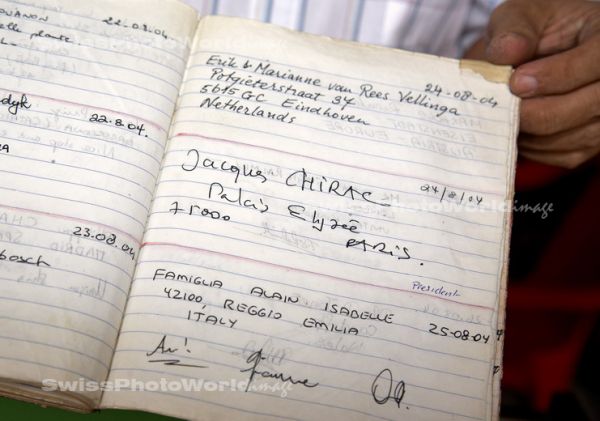 22.08.04
22.8.04.
23.08.04
Erik & Marianne van Rees Vellinga
24-08-04
Potgieterstraat 34
5615 GC Eindhoven
Netherlands
Jacques CHIRAC
24/8/04
Palais Elysée
75000
PARIS.
President
FAMIGLIA ALAIN ISABELLE
42100, REGGIO EMILIA
25-08-04
ITALY
SwissPhotoWorld image
SwissPhotoWorld image